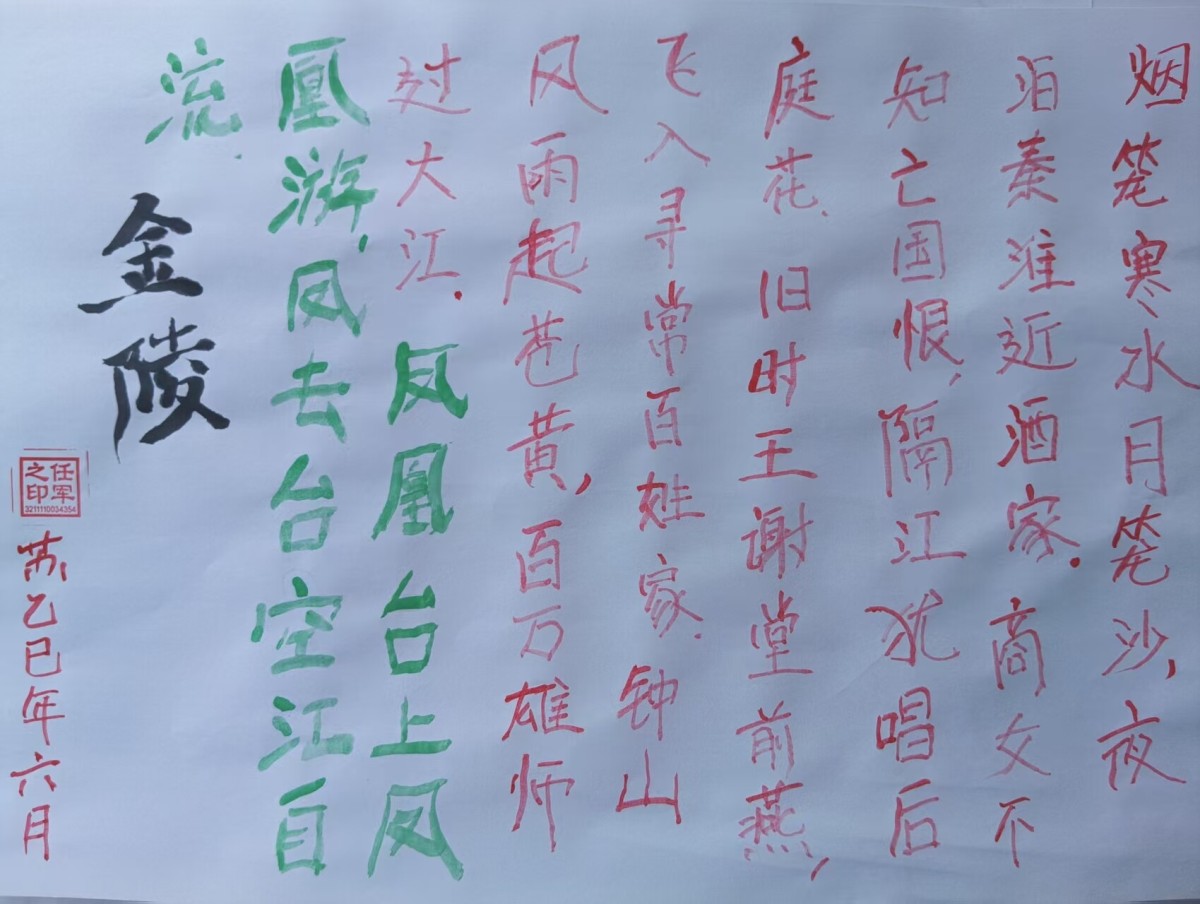 烟笼寒水月笼沙,夜
泊秦淮近酒家.商女不
知亡国恨,隔江犹唱后
庭花.旧时王谢堂前燕,
飞入寻常百姓家.钟山
风雨起苍黄,百万雄师
过大江.凤凰台上凤
凰游,凤去台空江自
流.
金陵
任军
之印
3211110034354
苏乙巳年六月